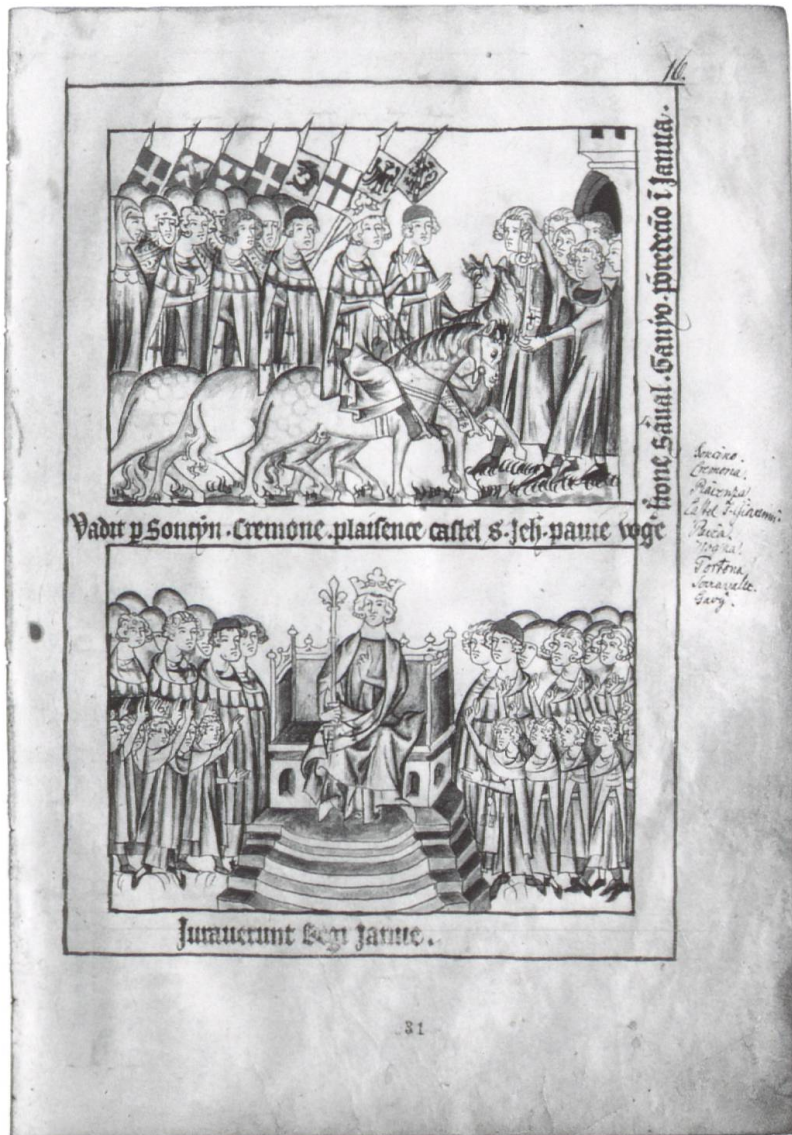 16.
Vadit p Sontzyn . Cremone . plaisence castel s . Jeh . pavie voge
trone Saval . Gauyo . pretereo i Janua .
Soncino.
Cremona.
Piacenza.
Castel S. Giovanni.
Pavia.
Voghera.
Tortona.
Serravalle.
Gavy.
Juraverunt Regi Janue .
31